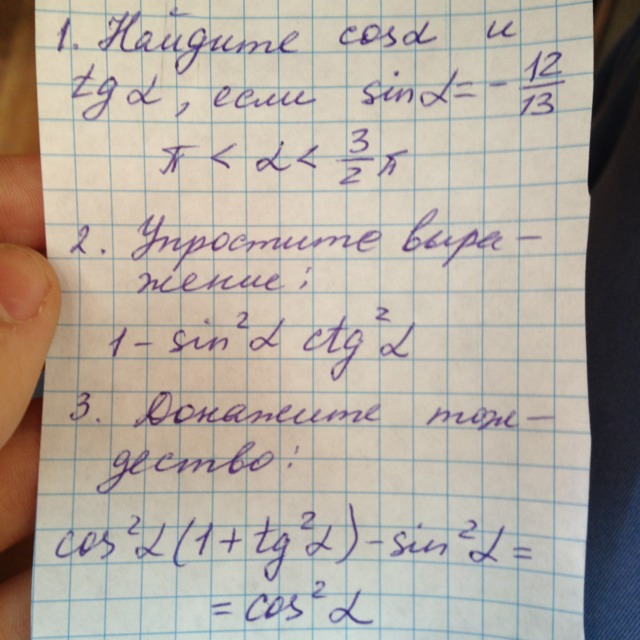 1. Найдите cosα и
tgα, если sinα = - 12/13
π < α < 3/2 π
2. Упростите выра-
жение:
1 - sin²α ctg²α
3. Докажите тож-
дество:
cos²α(1 + tg²α) - sin²α =
= cos²α